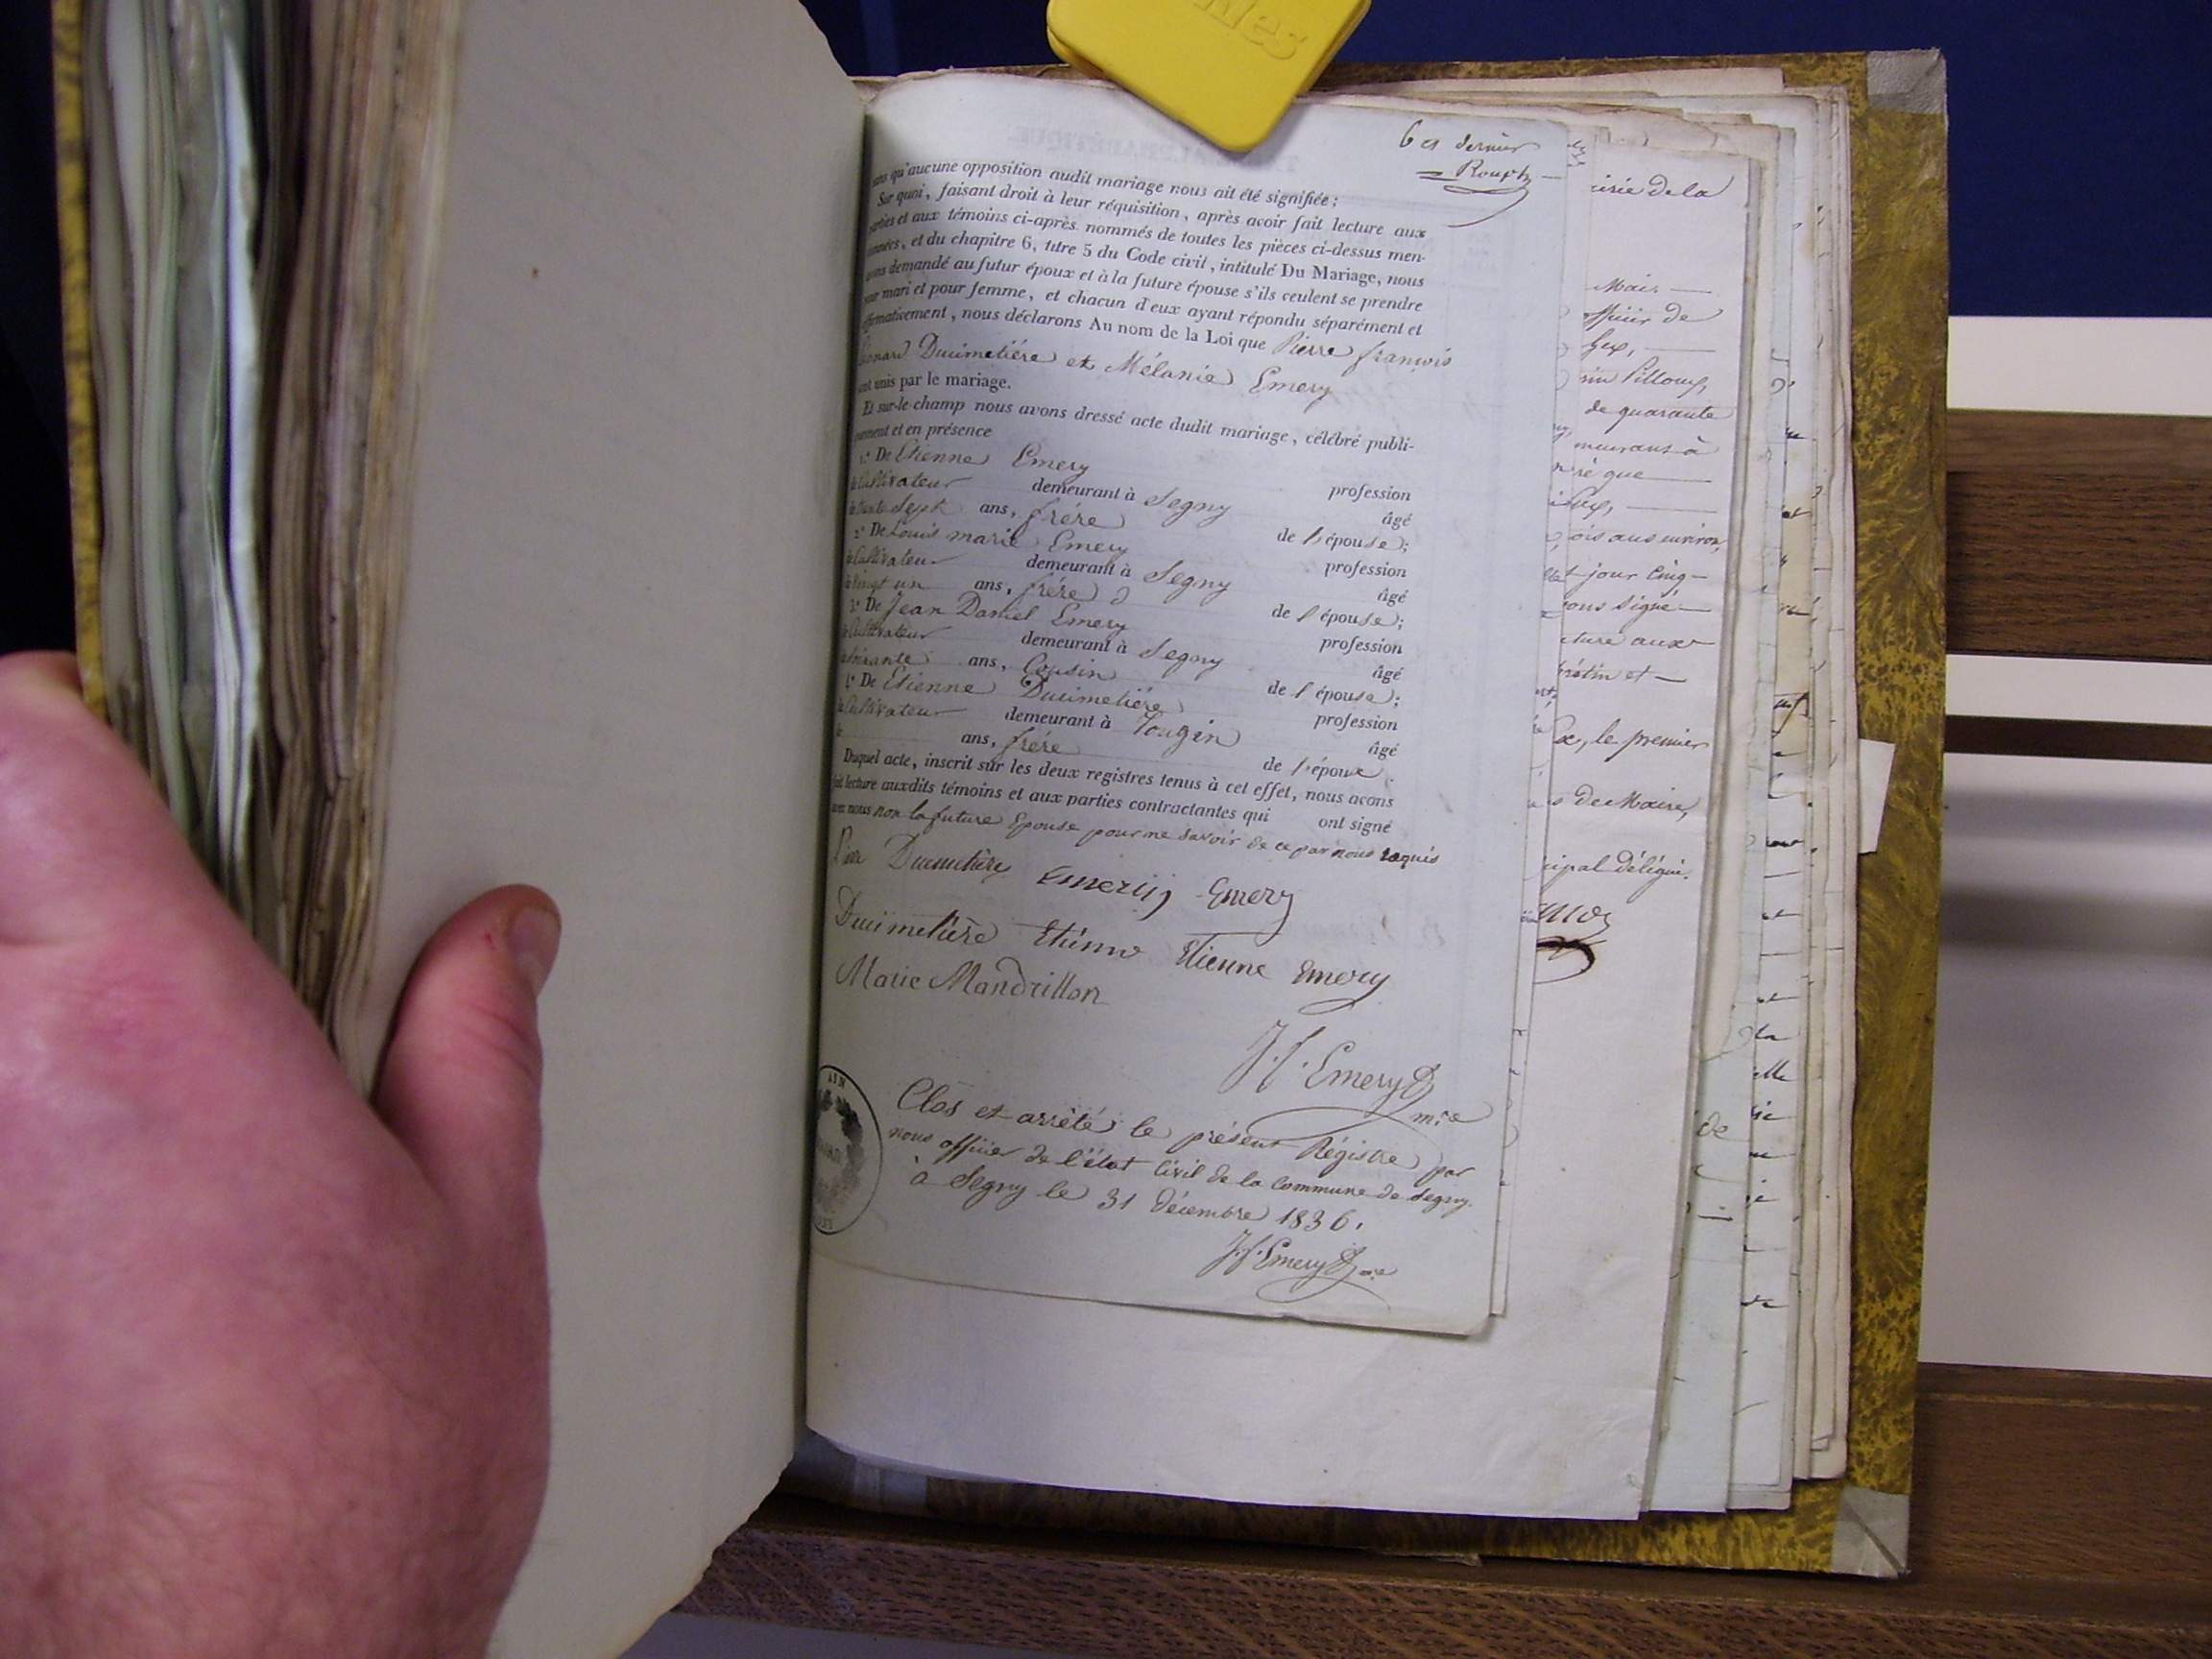 6 et dernier
Rouph
qu'aucune opposition audit mariage nous ait été signifiée;
Sur quoi, faisant droit à leur réquisition, après avoir fait lecture aux
parties et aux témoins ci-après nommés de toutes les pièces ci-dessus men-
tionnées, et du chapitre 6, titre 5 du Code civil, intitulé Du Mariage, nous
avons demandé au futur époux et à la future épouse s'ils veulent se prendre
pour mari et pour femme, et chacun d'eux ayant répondu séparément et
affirmativement, nous déclarons Au nom de la Loi que Pierre françois
Ducimetiére et Mélanie Emery
sont unis par le mariage.
Et sur-le-champ nous avons dressé acte dudit mariage, célébré publi-
quement et en présence
1.° De Etienne Emery profession
de Cultivateur demeurant à Segny âgé
de trente sept ans, frére de l'épouse;
2.° De Louis marie Emery profession
de Cultivateur demeurant à Segny âgé
de vingt un ans, frére de l'épouse;
3.° De Jean Daniel Emery profession
de Cultivateur demeurant à Segny âgé
de soixante ans, Cousin de l'épouse;
4.° De Etienne Ducimetiére profession
de Cultivateur demeurant à Tougin âgé
de ans, frére de l'époux.
Duquel acte, inscrit sur les deux registres tenus à cet effet, nous avons
fait lecture auxdits témoins et aux parties contractantes qui ont signé
avec nous non la future Epouse pour ne savoir de ce par nous requis
Ducimetière Emery Emery
Ducimetière Etienne Etienne Emery
Marie Mandrillon
J. f. Emery
mre
Clos et arrêté le présent Régistre par
nous officier de l'état Civil de la Commune de Segny.
à Segny le 31 Décembre 1836.
J. f. Emery
AIN
de la
Maire
officier de
Gex,
Pilloux,
de quarante
à
que
Gex,
ois ans environ,
jour Cinq
ons signé
cture aux
et
le premier
de Maire,
cipal délégué.